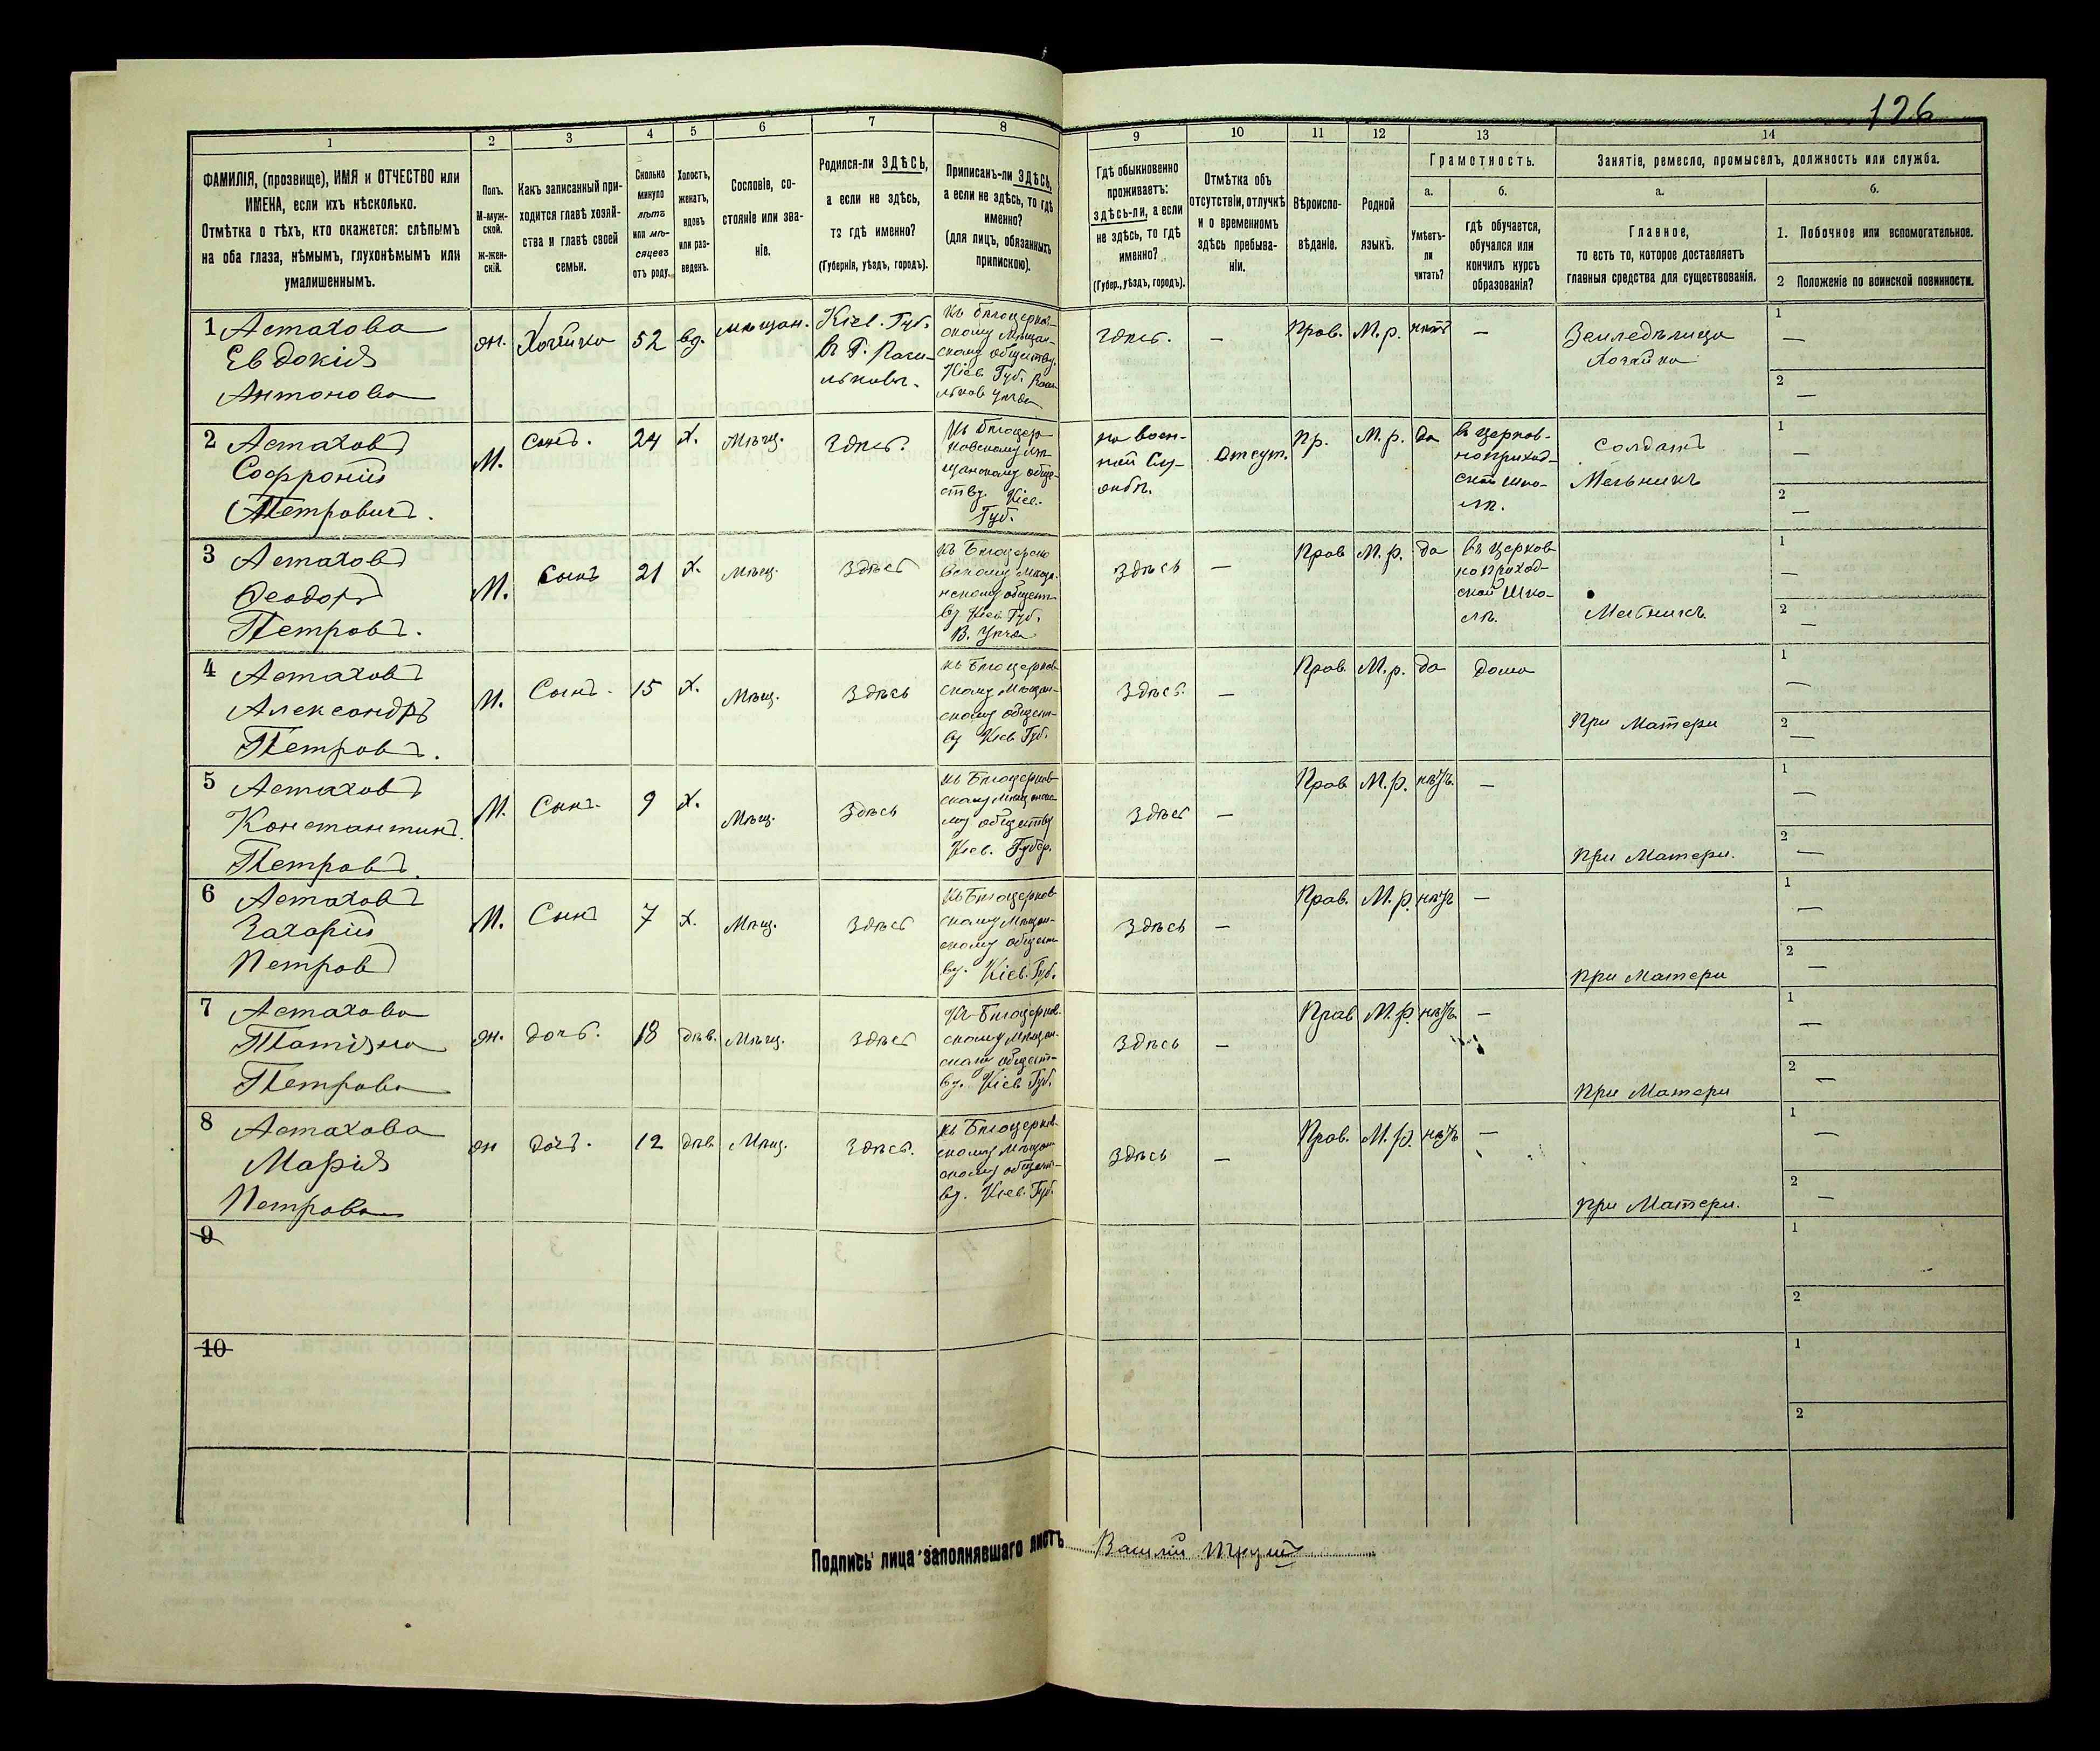 126
1
2
3
4
5
6
7
8
9
10
11
12
13
14
ФАМИЛІЯ, (прозвище), ИМЯ и ОТЧЕСТВО или
ИМЕНА, если ихъ нѣсколько.
Отмѣтка о тѣхъ, кто окажется: слѣпымъ
на оба глаза, нѣмымъ, глухонѣмымъ или
умалишеннымъ.
Полъ.
М-муж-
ской.
ж-жен-
скій.
Какъ записанный при-
ходится главѣ хозяй-
ства и главѣ своей
семьи.
Сколько
минуло
лѣтъ
или мѣ-
сяцевъ
отъ роду.
Холостъ,
женатъ,
вдовъ
или раз-
веденъ.
Сословіе, со-
стояніе или зва-
ніе.
Родился-ли ЗДѢСЬ,
а если не здѣсь,
то гдѣ именно?
(Губернія, уѣздъ, городъ).
Приписанъ-ли ЗДѢСЬ,
а если не здѣсь, то гдѣ
именно?
(для лицъ, обязанныхъ
припискою).
Гдѣ обыкновенно
проживаетъ:
здѣсь-ли, а если
не здѣсь, то гдѣ
именно?
(Губер., уѣздъ, городъ).
Отмѣтка объ
отсутствіи, отлучкѣ
и о временномъ
здѣсь пребыва-
ніи.
Вѣроиспо-
вѣданіе.
Родной
языкъ.
Грамотность.
а.
б.
Умѣетъ-
ли
читать?
гдѣ обучается,
обучался или
кончилъ курсъ
образованія?
Занятіе, ремесло, промыселъ, должность или служба.
а.
б.
Главное,
то есть то, которое доставляетъ
главныя средства для существованія.
1. Побочное или вспомогательное.
2 Положеніе по воинской повинности.
1
Астахова
Евдокія
Антонова
ж.
Хозяйка
52
вд.
мѣщан.
Кіев. Губ.
въ Г. Васи-
льковѣ.
къ Бѣлоцерков-
скому Мѣщан-
скому обществу
Кіев. Губ. Васи-
льков уѣзда
здѣсь.
—
Прав.
М.р.
нѣтъ
—
Земледѣлица
Хозяйка
1
—
2
—
2
Астаховъ
Софроній
Петровичъ.
М.
Сынъ.
24
х.
Мѣщ.
Здѣсь.
къ Бѣлоцер
ковскому мѣ-
щанскому обще-
ству. Кіев.
Губ.
на воен-
ной Слу-
жбѣ.
Отсут.
Пр.
М.р.
да
въ Церков-
ноприход-
ской шко-
лѣ.
Солдатъ
Мельникъ
1
—
2
—
3
Астаховъ
Ѳеодоръ
Петровъ.
М.
Сынъ
21
х.
Мѣщ.
Здѣсь
къ Бѣлоцерко
вскому Мѣща-
нскому общест-
ву Кіев. Губ.
В. Уѣзда
Здѣсь
—
Прав
М.р.
да
въ Церков
ноприход-
ской Шко-
лѣ.
Мельникъ.
1
—
2
—
4
Астаховъ
Александръ
Петровъ.
М.
Сынъ.
15
х.
Мѣщ.
Здѣсь
къ Бѣлоцерков
скому Мѣщан-
скому общест-
ву Кіев. Губ.
Здѣсь.
—
Прав.
М.р.
да
дома
При Матери
1
—
2
—
5
Астаховъ
Константинъ.
Петровъ.
М.
Сынъ.
9
х.
Мѣщ.
Здѣсь
къ Бѣлоцерков
скому Мѣщанско
му обществу
Кіев. Губер.
Здѣсь
—
Прав
М.р.
нѣтъ.
—
При Матери.
1
—
2
—
6
Астаховъ
Захарій
Петровъ
М.
Сынъ
7
х.
Мѣщ.
Здѣсь
къ Бѣлоцерков
скому Мѣщан-
скому общест
ву. Кіев. Губ.
Здѣсь
—
Прав.
М.р.
нѣтъ
—
При Матери
1
—
2
—
7
Астахова
Татіяна
Петрова
ж.
дочь.
18
дѣв.
Мѣщ.
Здѣсь
къ Бѣлоцерков.
скому Мѣщан-
скому общест-
ву. Кіев Губ.
Здѣсь
—
Прав
М.р.
нѣтъ.
—
При Матери
1
—
2
—
8
Астахова
Марія
Петрова
ж
дочь.
12
дѣв
Мѣщ.
Здѣсь.
къ Бѣлоцерков.
скому Мѣщан
скому общест-
ву. Кіев. Губ.
Здѣсь
—
Прав.
М.р.
нѣтъ
—
При Матери.
1
—
2
—
9
1
2
10
1
2
Подпись лица заполнявшаго листъ Василій